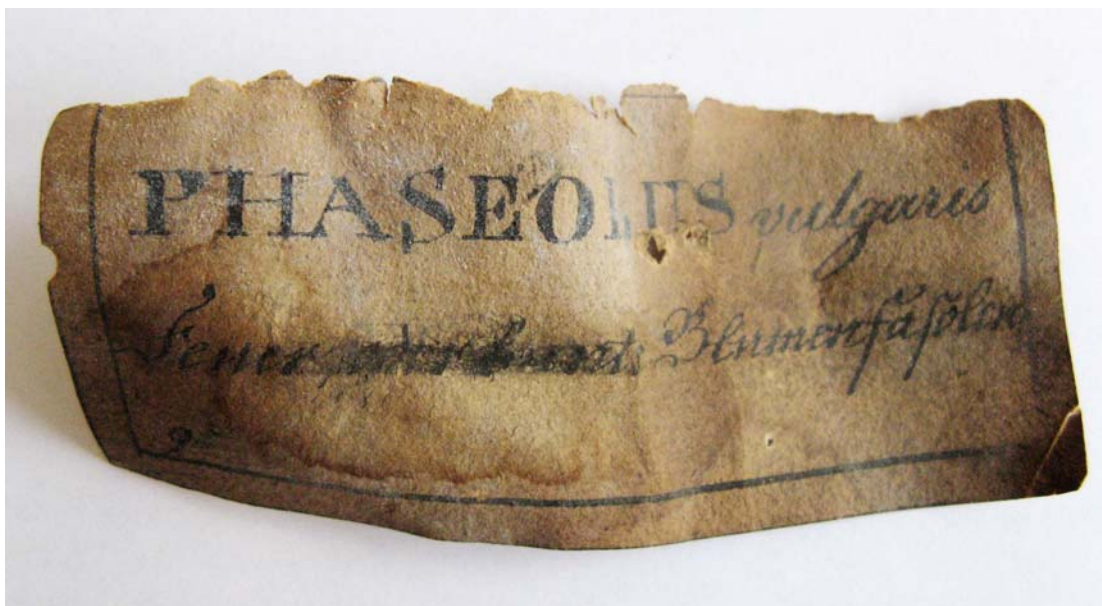 PHASEOLUS vulgaris
Feuer Blumenfäsolen